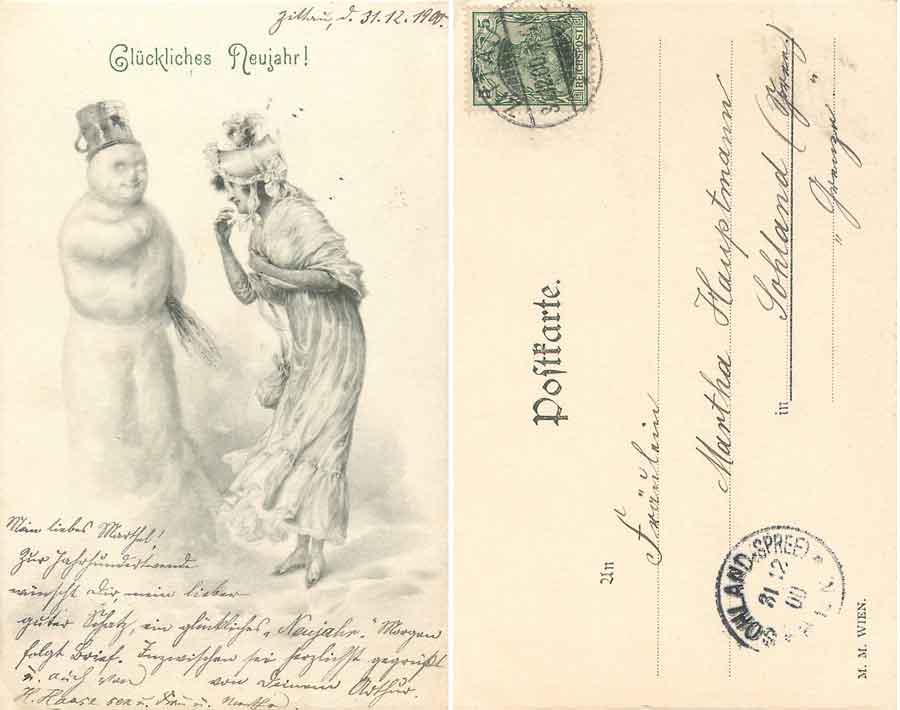 Zittau, d. 31.12.1900.
Glückliches Neujahr!
Mein liebes Marthel!
Zur Jahrhundertwende
wünscht Dir, mein lieber
guter Schatz, ein glückliches „Neujahr.“ Morgen
folgt Brief. Inzwischen sei herzlichst gegrüßt
u. auch von von Deinem Arthur.
H. Haase sen u. Frau u.
5
REICHSPOST
5
Postkarte.
An
Fräulein
Martha Hauptmann
in Sohland (Spree)
SOHLAND (SPREE)
31 12
00
M. M. WIEN.